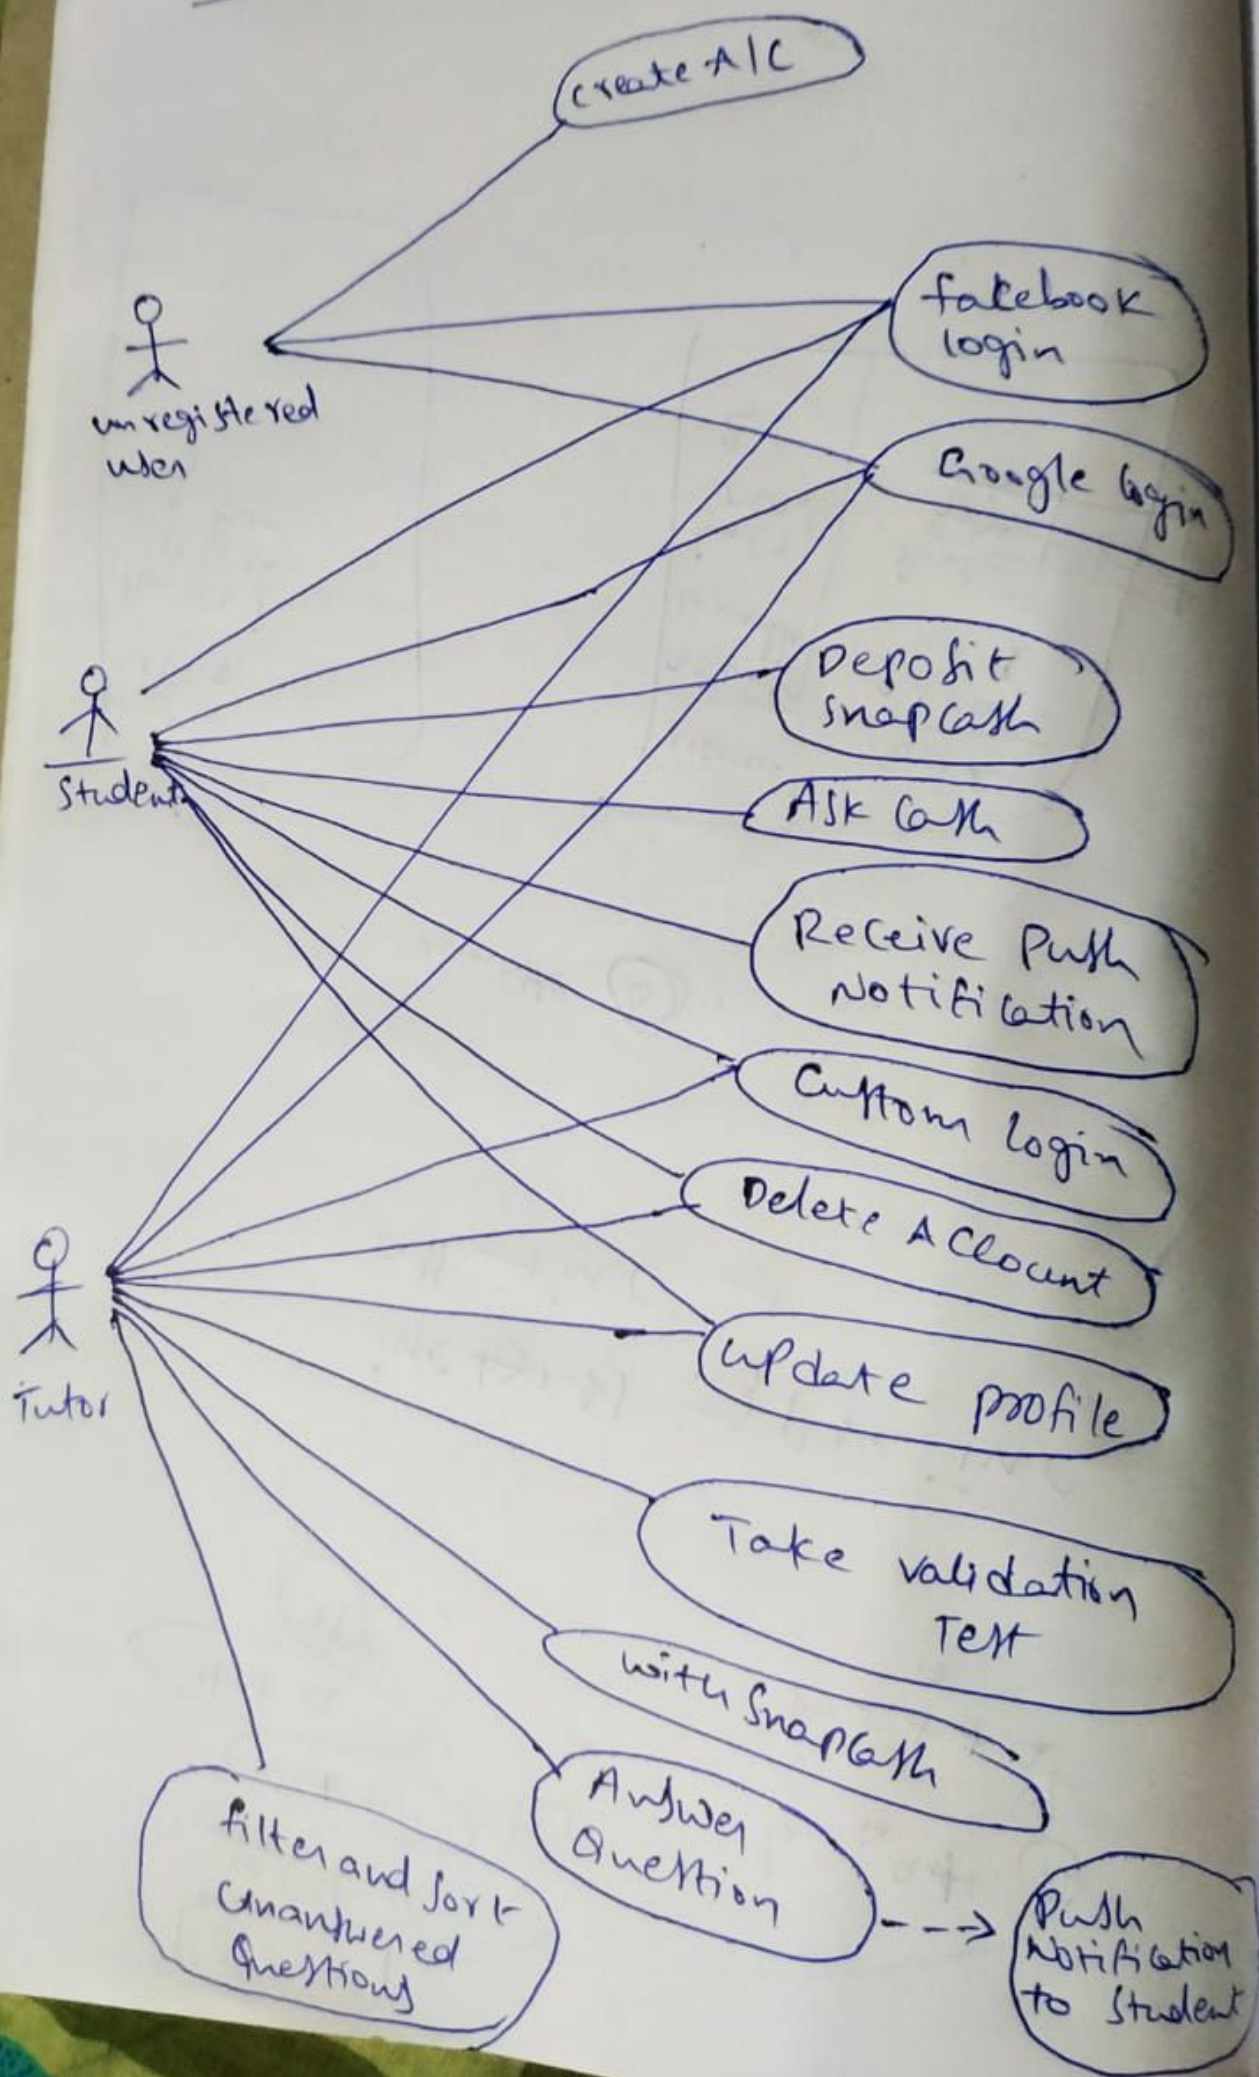 create A/C
facebook
login
unregistered
user
Google login
Deposit
snapcash
Student
Ask Cash
Receive Push
Notification
Custom login
Delete Account
Tutor
update profile
Take validation
Test
with Snapcash
Answer
Question
filter and sort
unanswered
Questions
Push
Notification
to Student